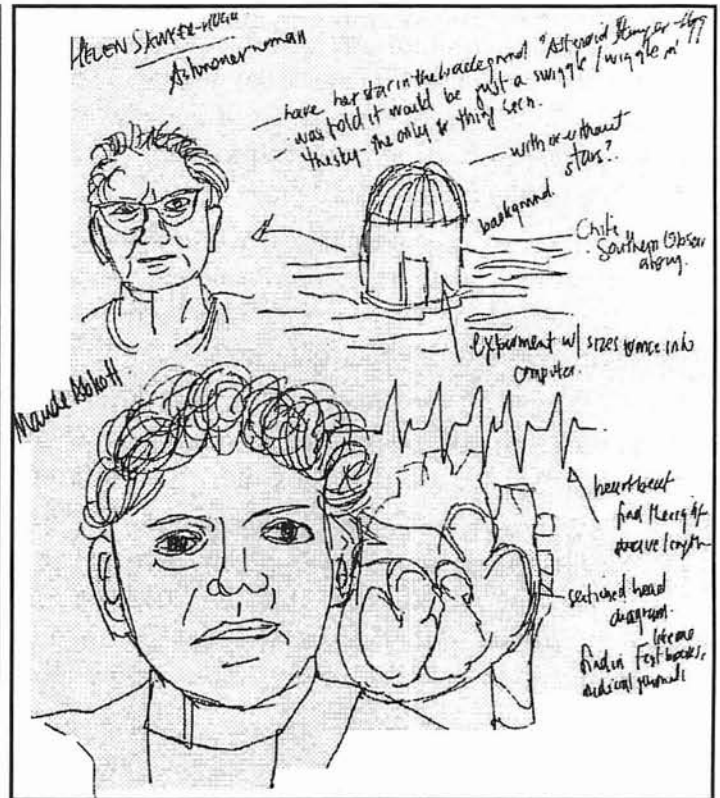 HELEN SAWYER-HOGG
Astronomer woman
have her star in the background "Asteroid Sawyer-Hogg
was told it would be just a swiggle / wiggle in
the sky - the only thing seen.
with or without
stars?
background.
Chile
Southern Obser
atory.
experiment w/ sizes once into
computer.
Maude Abbott
heartbeat
find the right
wave length
sectioned heart
diagram.
find in text books,
medical journals